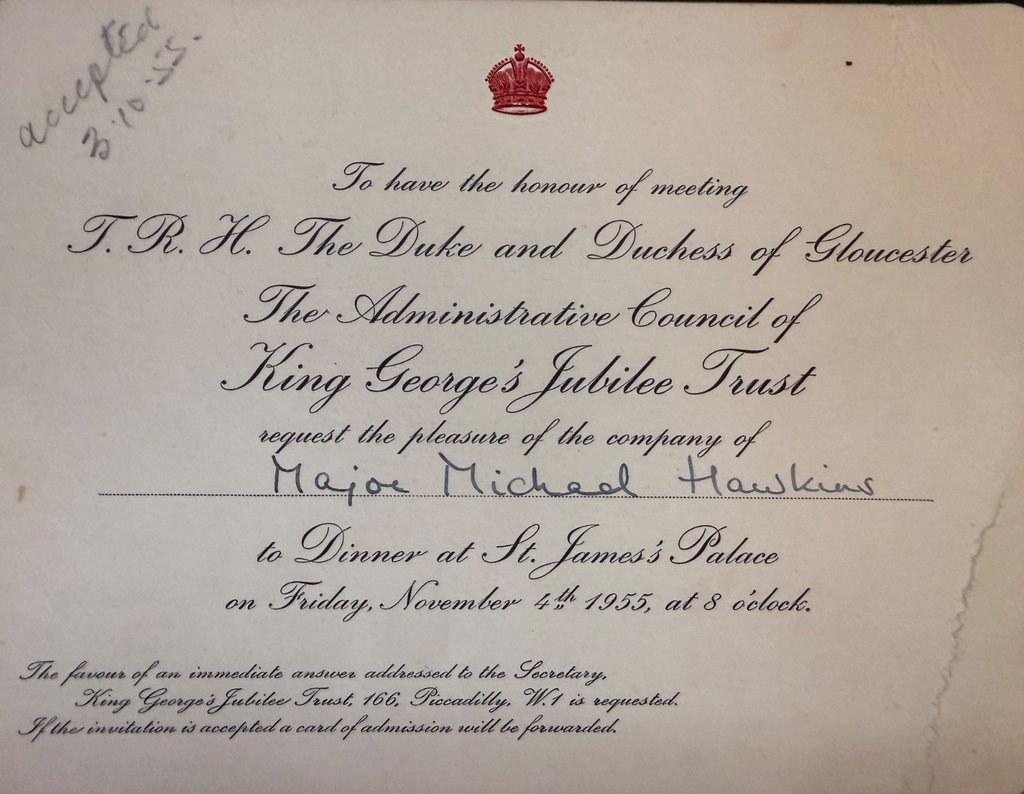 accepted
3.10.55.
To have the honour of meeting
T. R. H. The Duke and Duchess of Gloucester
The Administrative Council of
King George's Jubilee Trust
request the pleasure of the company of
Major Michael Hawkins
to Dinner at St. James's Palace
on Friday, November 4th 1955, at 8 o'clock.
The favour of an immediate answer addressed to the Secretary,
King George's Jubilee Trust, 166, Piccadilly, W.1 is requested.
If the invitation is accepted a card of admission will be forwarded.